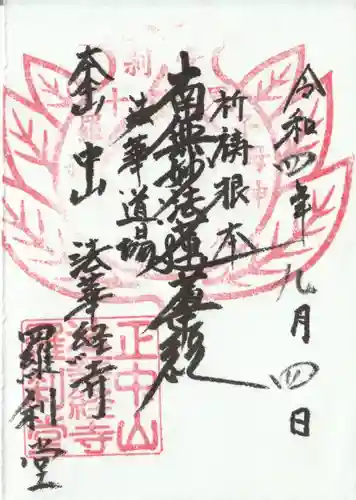 令和四年九月四日
祈祷根本
南無妙法蓮華経
法華道場
大本山
中山
法華経寺
羅刹堂
正中山
法華経寺
羅刹堂